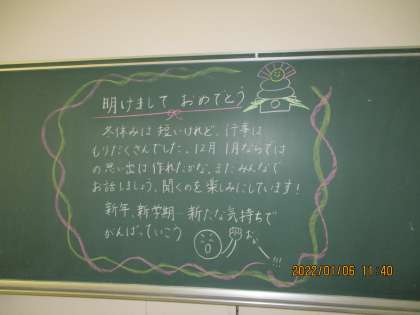 明けまして おめでとう
冬休みは短いけれど、行事は
もりだくさんでした。12月 1月ならでは
の思い出は作れたかな。またみんなで
お話しましょう。聞くのを楽しみにしています!
新年、新学期 新たな気持ちで
がんばっていこう
お〜!!!
2022/01/06 11:40